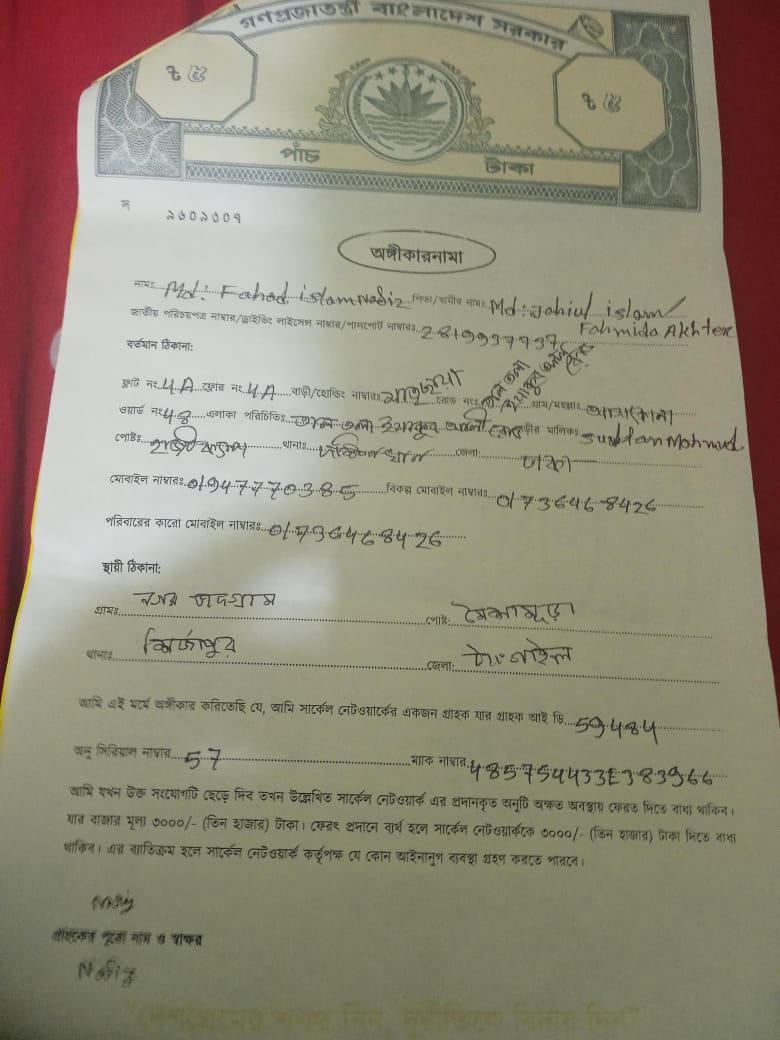 গণপ্রজাতন্ত্রী বাংলাদেশ সরকার
৳ ৫ ৳ ৫
পাঁচ টাকা
স ৯৬০৯৩০৭
অঙ্গীকারনামা
নামঃ Md: Fahad islam Nabiz পিতা/স্বামীর নামঃ Md: Jahiul islam/
Fahmida Akhter
জাতীয় পরিচয়পত্র নাম্বার/ড্রাইভিং লাইসেন্স নাম্বার/পাসপোর্ট নাম্বারঃ 2819937737
বর্তমান ঠিকানা:
ফ্লাট নং 4A ফ্লোর নং 4A বাড়ী/হোল্ডিং নাম্বারঃ মাতৃছায়া রোড নং তাল তলা গ্রাম/মহল্লাঃ
ওয়ার্ড নং 48 এলাকা পরিচিতিঃ তাল তলা ইয়াকুব আলী রোড বাড়ীর মালিকঃ Suddam Mahmud
পোষ্টঃ থানাঃ দক্ষিনখান জেলা: ঢাকা
মোবাইল নাম্বারঃ 01947770385 বিকল্প মোবাইল নাম্বারঃ 01736468426
পরিবারের কারো মোবাইল নাম্বারঃ 01736468426
স্থায়ী ঠিকানা:
গ্রামঃ নগর ভাদগ্রাম পোষ্ট:
থানাঃ মির্জাপুর জেলা: টাংগাইল
আমি এই মর্মে অঙ্গীকার করিতেছি যে, আমি সার্কেল নেটওয়ার্কের একজন গ্রাহক যার গ্রাহক আই ডি 59484
অনু সিরিয়াল নাম্বার 57 ম্যাক নাম্বার 485754433E383966
আমি যখন উক্ত সংযোগটি ছেড়ে দিব তখন উল্লেখিত সার্কেল নেটওয়ার্ক এর প্রদানকৃত অনুটি অক্ষত অবস্থায় ফেরত দিতে বাধ্য থাকিব।
যার বাজার মূল্য ৩০০০/- (তিন হাজার) টাকা। ফেরৎ প্রদানে ব্যর্থ হলে সার্কেল নেটওয়ার্ককে ৩০০০/- (তিন হাজার) টাকা দিতে বাধ্য
থাকিব। এর ব্যতিক্রম হলে সার্কেল নেটওয়ার্ক কর্তৃপক্ষ যে কোন আইনানুগ ব্যবস্থা গ্রহণ করতে পারবে।
গ্রাহকের পুরো নাম ও স্বাক্ষর
Nabiz
"দেশপ্রেমের শপথ নিন, দুর্নীতিকে বিদায় দিন"